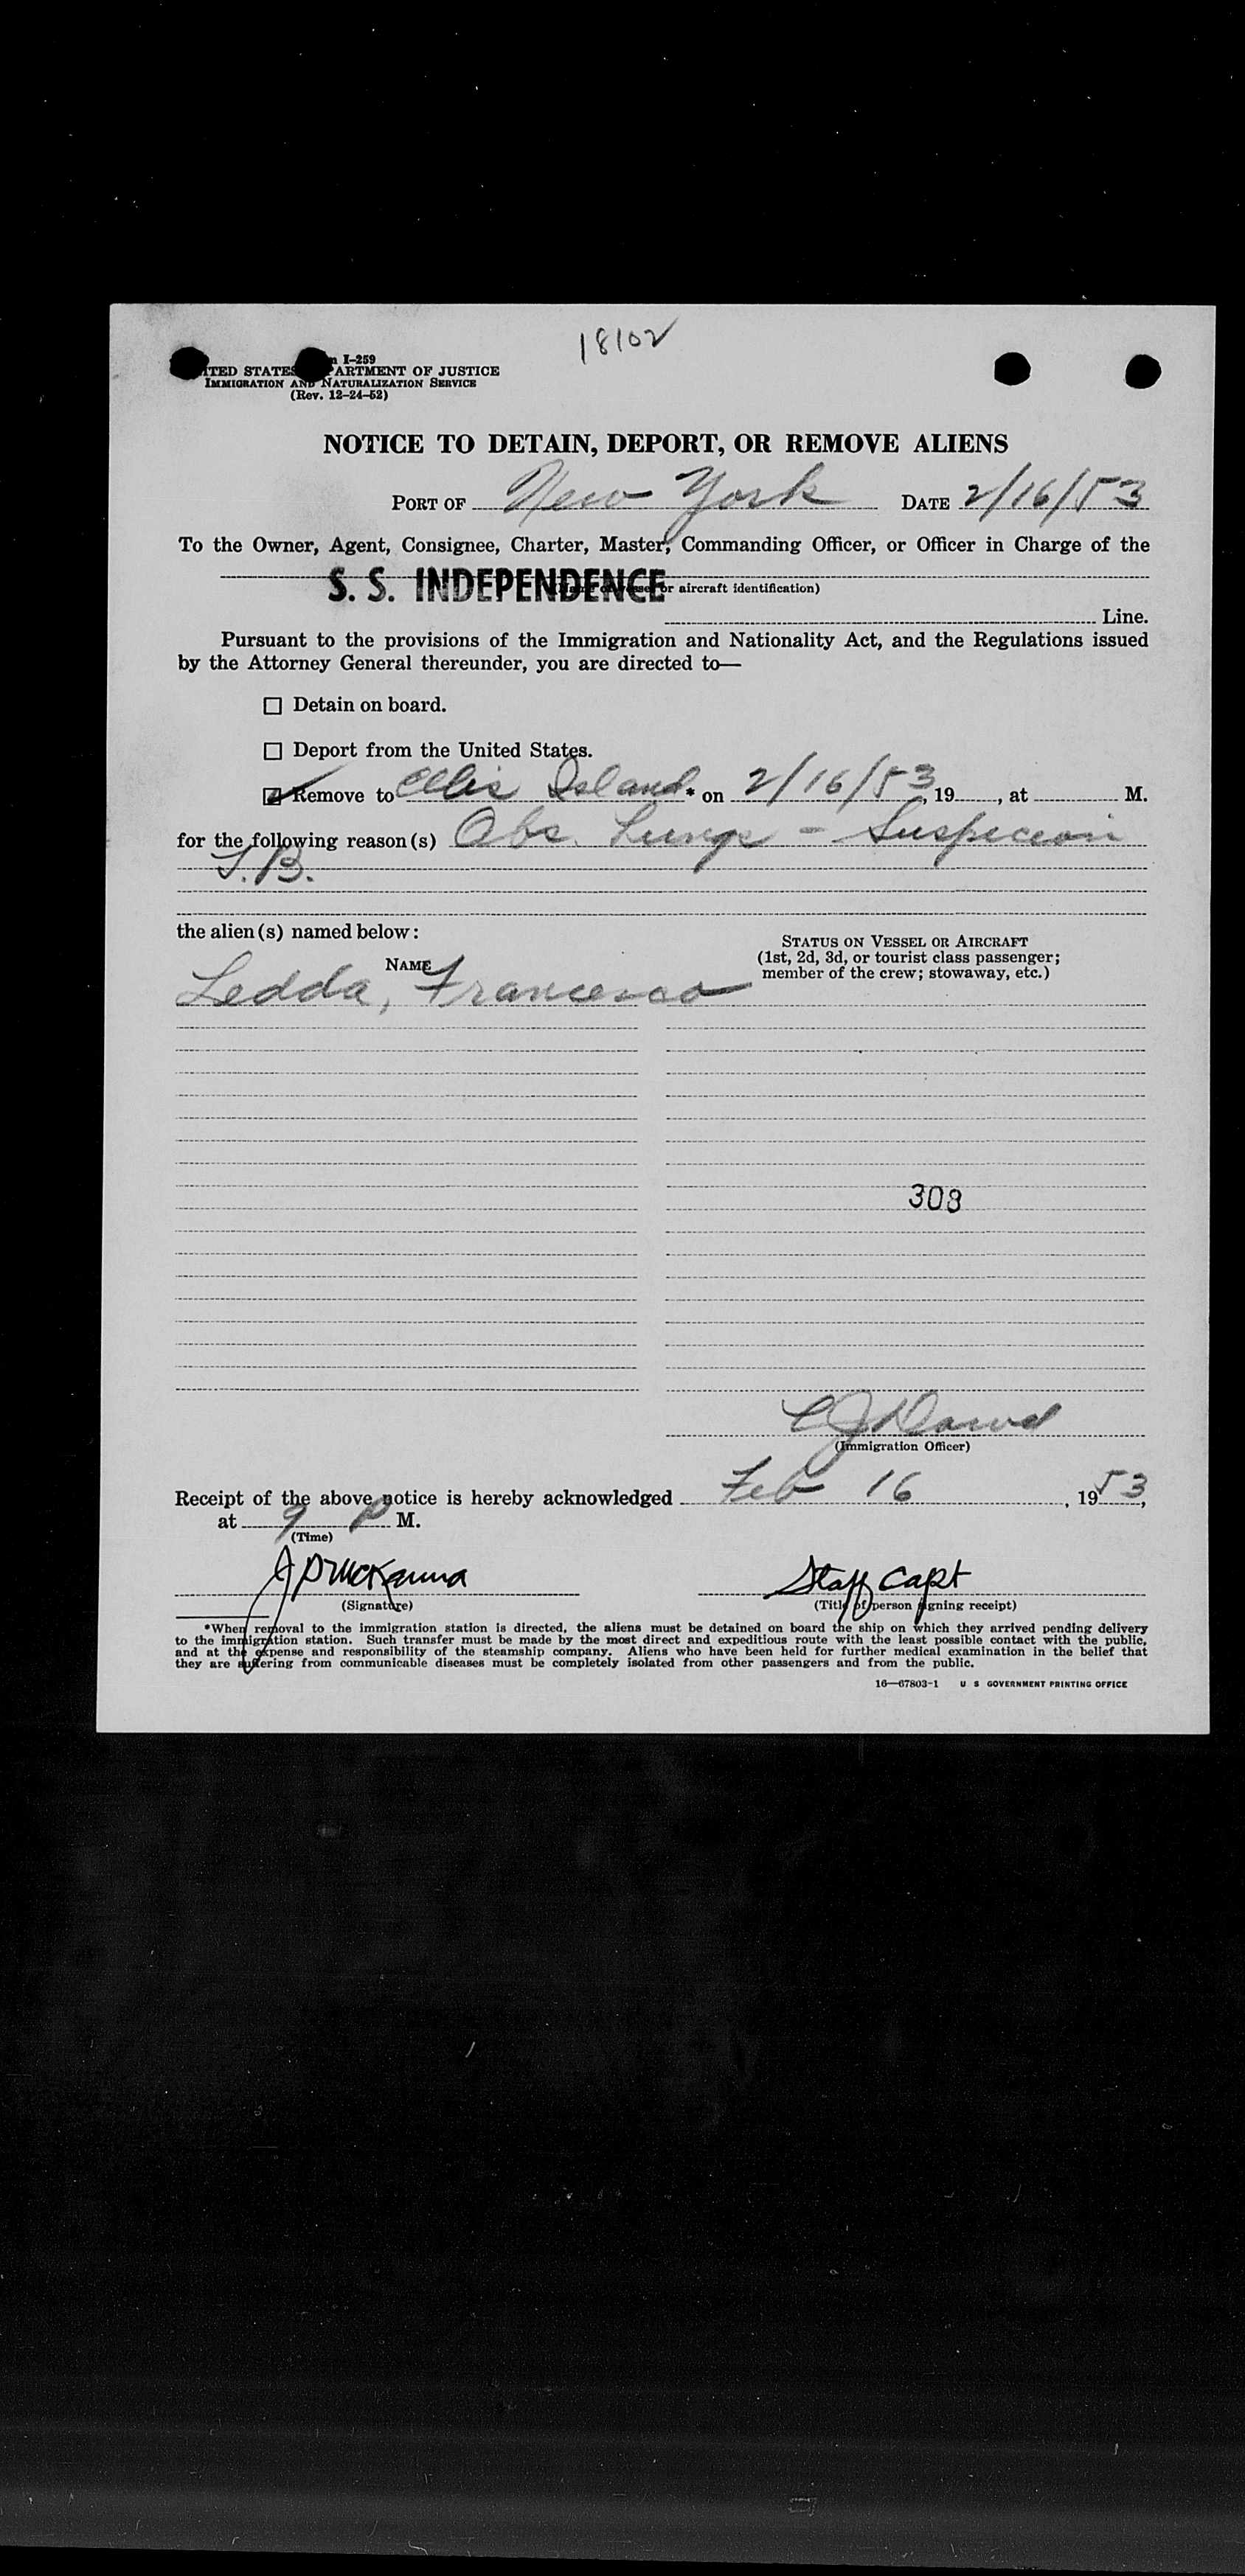 18102
I-259
ITED STATES PARTMENT OF JUSTICE
IMMIGRATION AND NATURALIZATION SERVICE
(Rev. 12-24-52)
NOTICE TO DETAIN, DEPORT, OR REMOVE ALIENS
PORT OF New York DATE 2/16/53
To the Owner, Agent, Consignee, Charter, Master, Commanding Officer, or Officer in Charge of the
S. S. INDEPENDENCE or aircraft identification)
Line.
Pursuant to the provisions of the Immigration and Nationality Act, and the Regulations issued
by the Attorney General thereunder, you are directed to—
☐ Detain on board.
☐ Deport from the United States.
☑ Remove to Ellis Island* on 2/16/53, 19, at M.
for the following reason(s) Obs. Lungs - Suspicion
T.B.
the alien(s) named below:
NAME
STATUS ON VESSEL OR AIRCRAFT
(1st, 2d, 3d, or tourist class passenger;
member of the crew; stowaway, etc.)
Ledda, Francesco
308
C J Dowd
(Immigration Officer)
Receipt of the above notice is hereby acknowledged Feb 16, 1953,
at 9 P M.
(Time)
McKenna Staff Capt
(Signature) (Title of person signing receipt)
*When removal to the immigration station is directed, the aliens must be detained on board the ship on which they arrived pending delivery
to the immigration station. Such transfer must be made by the most direct and expeditious route with the least possible contact with the public,
and at the expense and responsibility of the steamship company. Aliens who have been held for further medical examination in the belief that
they are suffering from communicable diseases must be completely isolated from other passengers and from the public.
16—67803-1 U S GOVERNMENT PRINTING OFFICE